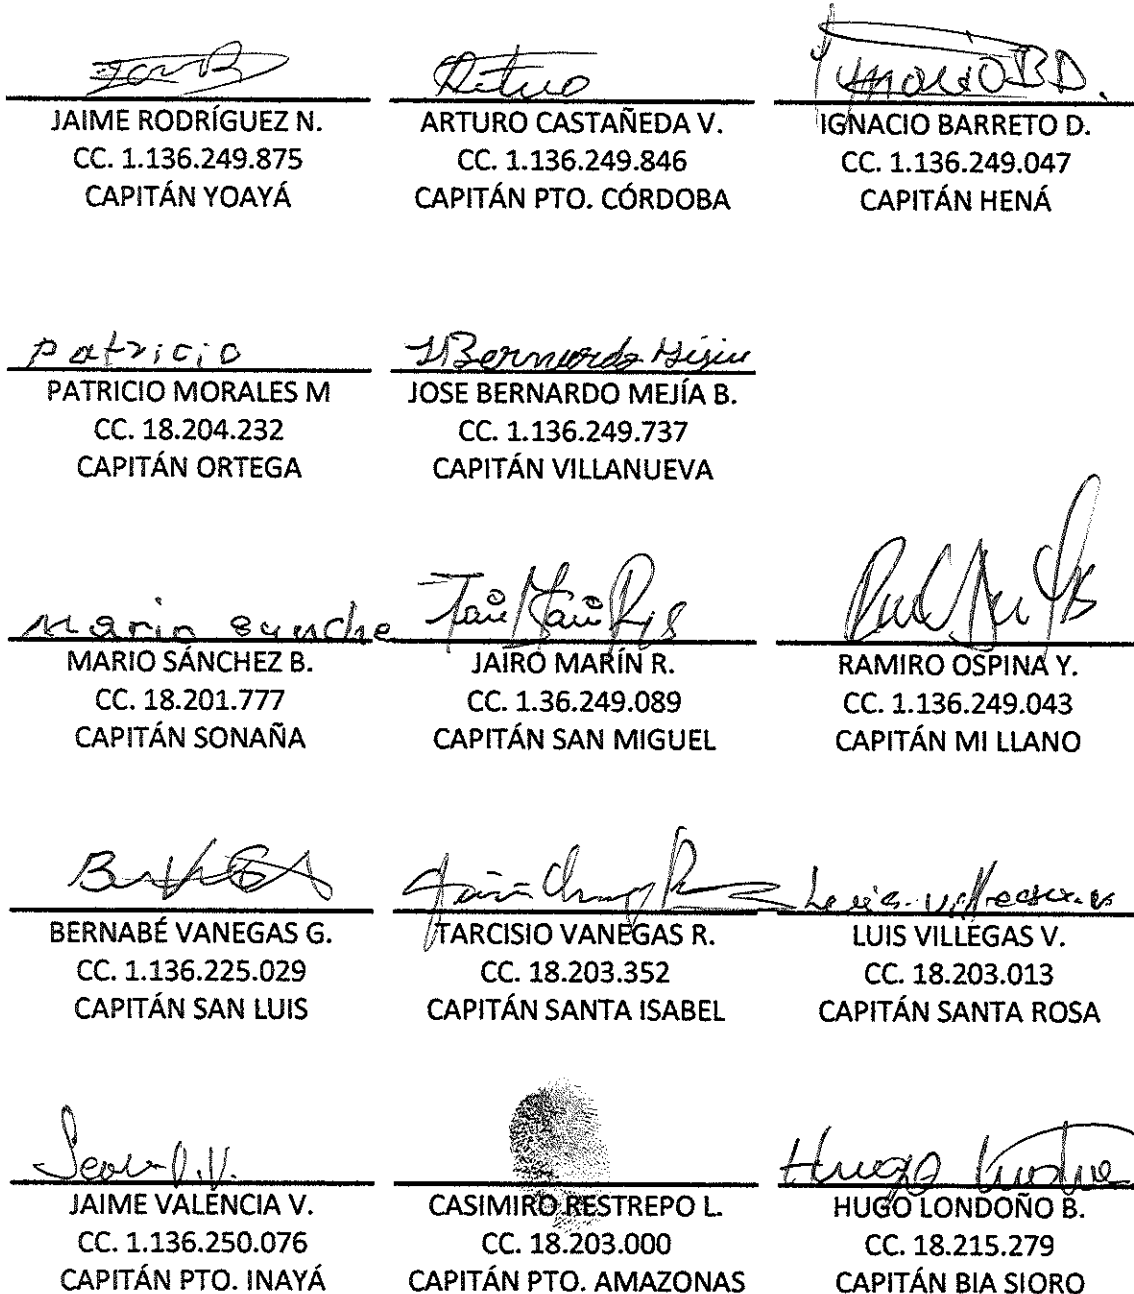 JAIME RODRÍGUEZ N.
CC. 1.136.249.875
CAPITÁN YOAYÁ
Arturo
ARTURO CASTAÑEDA V.
CC. 1.136.249.846
CAPITÁN PTO. CÓRDOBA
IGNACIO BARRETO D.
CC. 1.136.249.047
CAPITÁN HENÁ
Patricio
PATRICIO MORALES M
CC. 18.204.232
CAPITÁN ORTEGA
JOSE BERNARDO MEJÍA B.
CC. 1.136.249.737
CAPITÁN VILLANUEVA
MARIO SÁNCHEZ B.
CC. 18.201.777
CAPITÁN SONAÑA
JAIRO MARÍN R.
CC. 1.36.249.089
CAPITÁN SAN MIGUEL
RAMIRO OSPINA Y.
CC. 1.136.249.043
CAPITÁN MI LLANO
BERNABÉ VANEGAS G.
CC. 1.136.225.029
CAPITÁN SAN LUIS
TARCISIO VANEGAS R.
CC. 18.203.352
CAPITÁN SANTA ISABEL
LUIS VILLEGAS V.
CC. 18.203.013
CAPITÁN SANTA ROSA
JAIME VALENCIA V.
CC. 1.136.250.076
CAPITÁN PTO. INAYÁ
CASIMIRO RESTREPO L.
CC. 18.203.000
CAPITÁN PTO. AMAZONAS
Hugo
HUGO LONDOÑO B.
CC. 18.215.279
CAPITÁN BIA SIORO